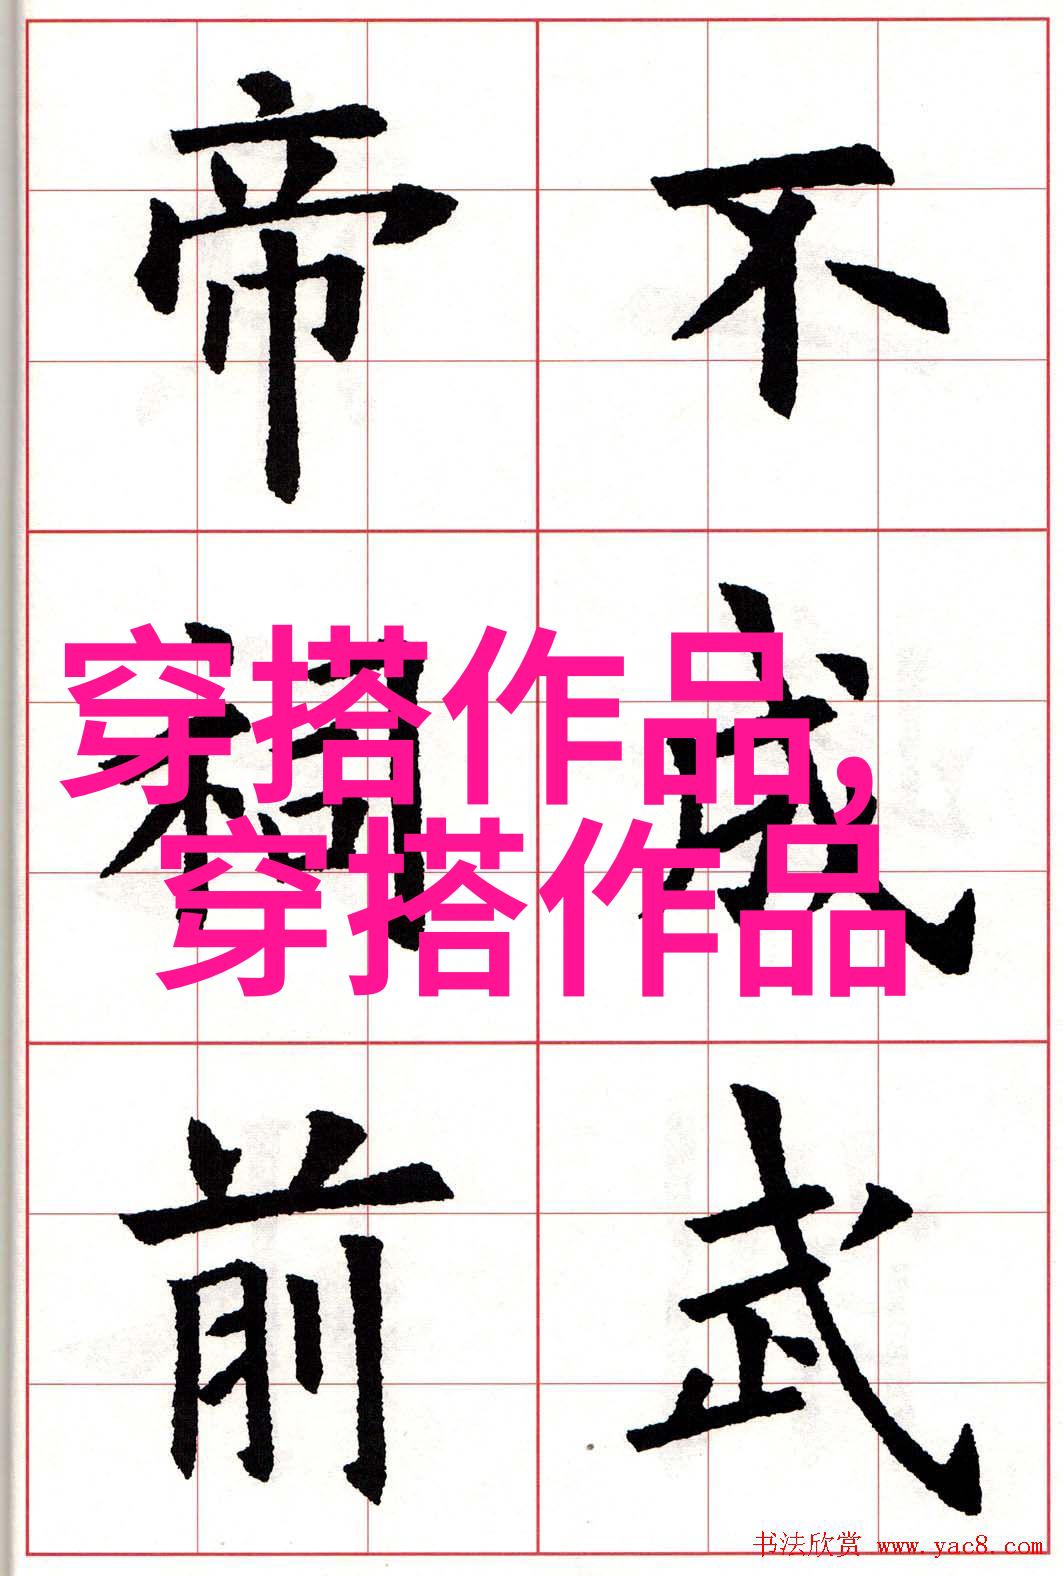 不成武
帝相前
穿搭作品,
穿搭作品
书法欣赏 www.yac8.com